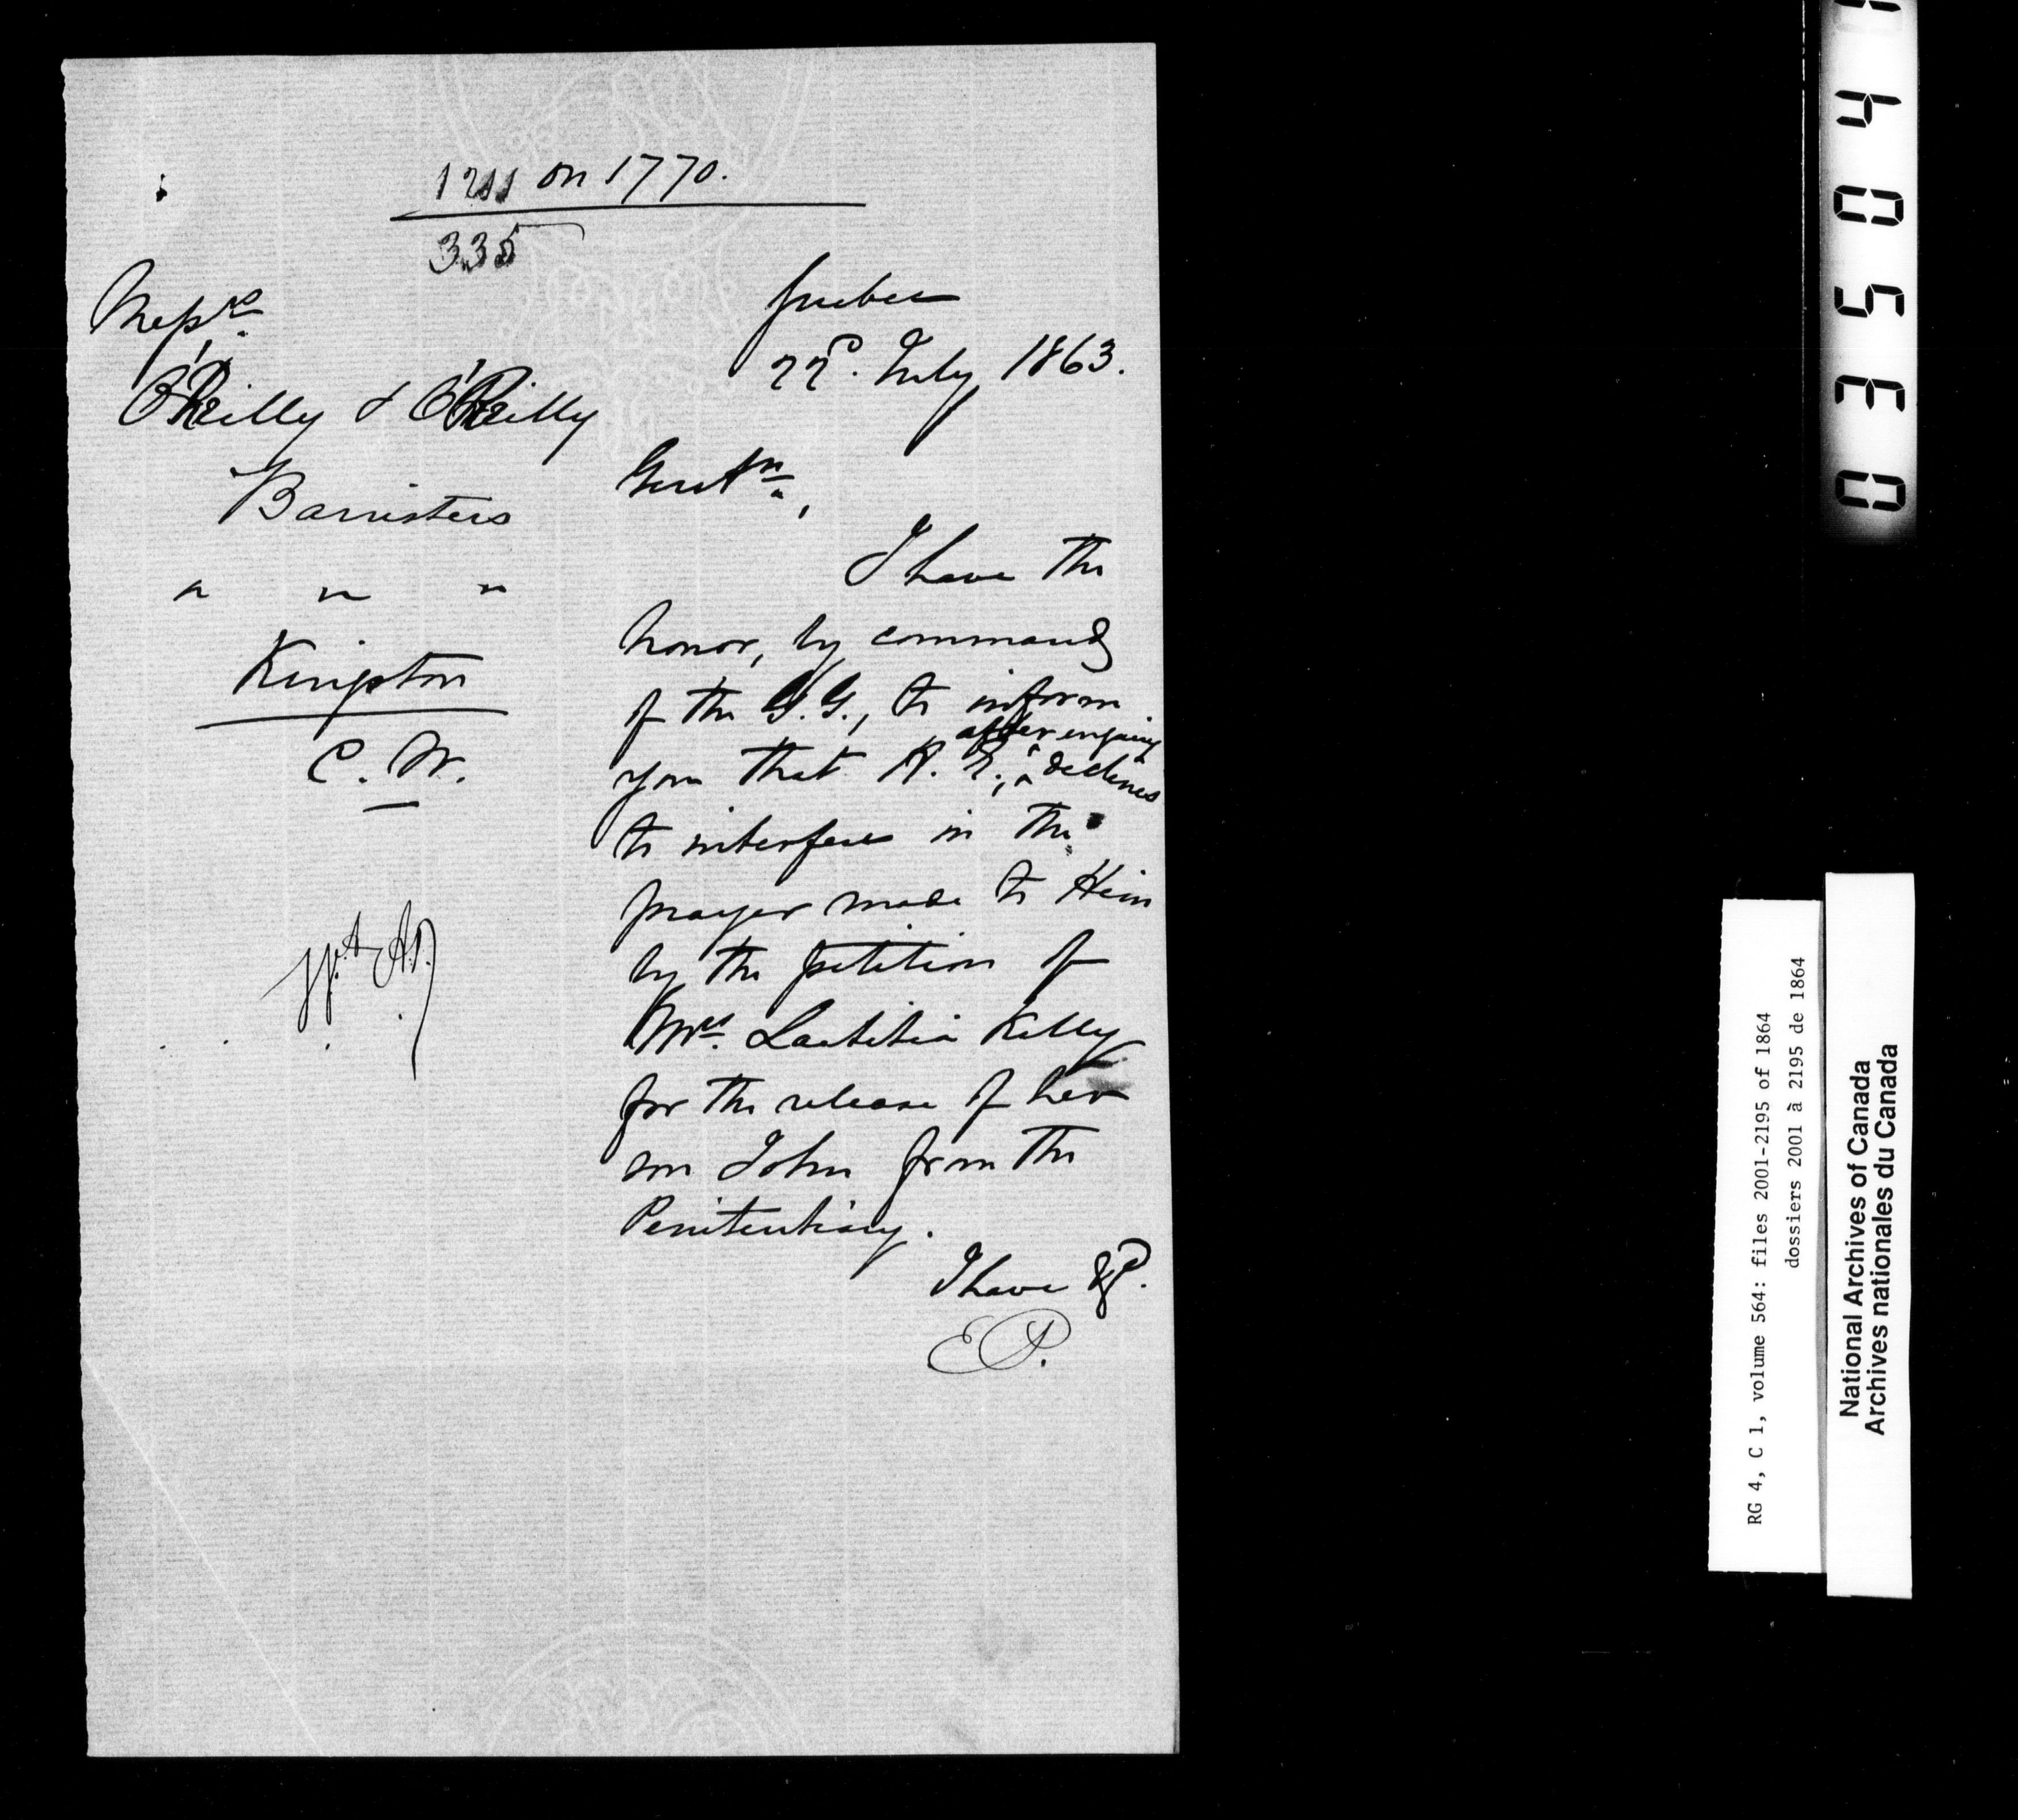 1211 on 1770.
335
Messrs.
O'Reilly & O'Reilly
Barristers
" " "
Kingston
C. W.
Quebec
22d. July 1863.
Gentn.,
I have the
honor, by command
of the G.G., to inform
you that H. E., after enquiry declines
to interfere in the
prayer made to Him
by the petition of
Mrs. Laetitia Kelly
for the release of her
son John from the
Penitentiary.
I have &c.
EP.
03504
RG 4, C 1, volume 564: files 2001-2195 of 1864
dossiers 2001 à 2195 de 1864
National Archives of Canada
Archives nationales du Canada